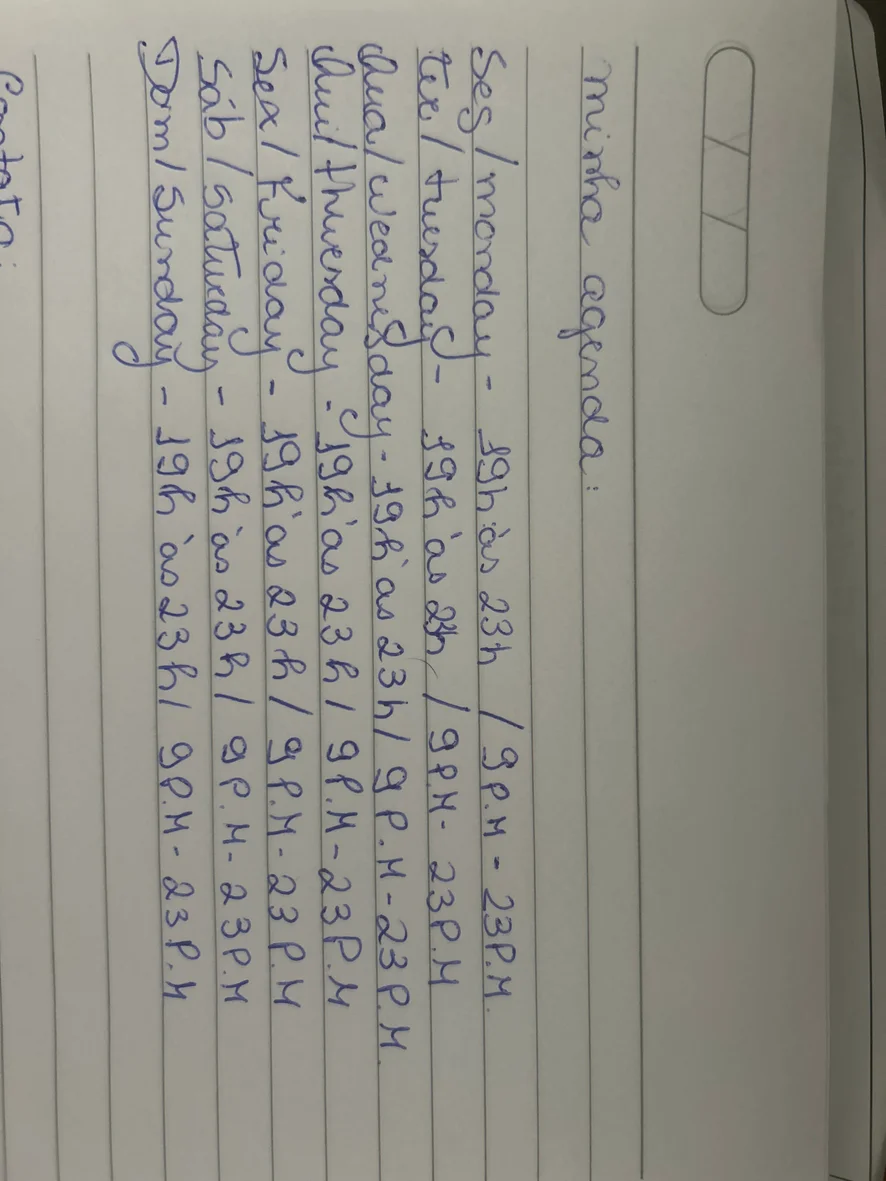 / /
minha agenda:
Seg / monday - 19h às 23h / 9 P.M - 23P.M.
ter / tuesday - 19h às 23h / 9 P.M - 23 P.M
Qua / wednesday - 19h às 23h / 9 P.M - 23 P.M.
Qui / thuesday - 19h às 23h / 9 P.M - 23 P.M
Sex / Friday - 19h às 23h / 9 P.M - 23 P.M
Sáb / Saturday - 19h às 23h / 9 P.M - 23 P.M
Dom / Sunday - 19h às 23h / 9 P.M - 23 P.M